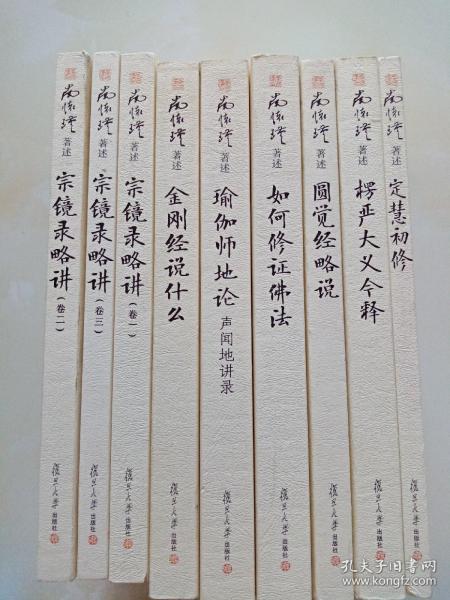 南怀瑾 著述
宗镜录略讲（卷二）
復旦大學出版社
南怀瑾 著述
宗镜录略讲（卷三）
復旦大學出版社
南怀瑾 著述
宗镜录略讲（卷一）
復旦大學出版社
南怀瑾 著述
金刚经说什么
復旦大學出版社
南怀瑾 著述
瑜伽师地论 声闻地讲录
復旦大學出版社
南怀瑾 著述
如何修证佛法
復旦大學出版社
南怀瑾 著述
圆觉经略说
復旦大學出版社
南怀瑾 著述
楞严大义今释
復旦大學出版社
南怀瑾 著述
定慧初修
復旦大學出版社
孔夫子旧书网